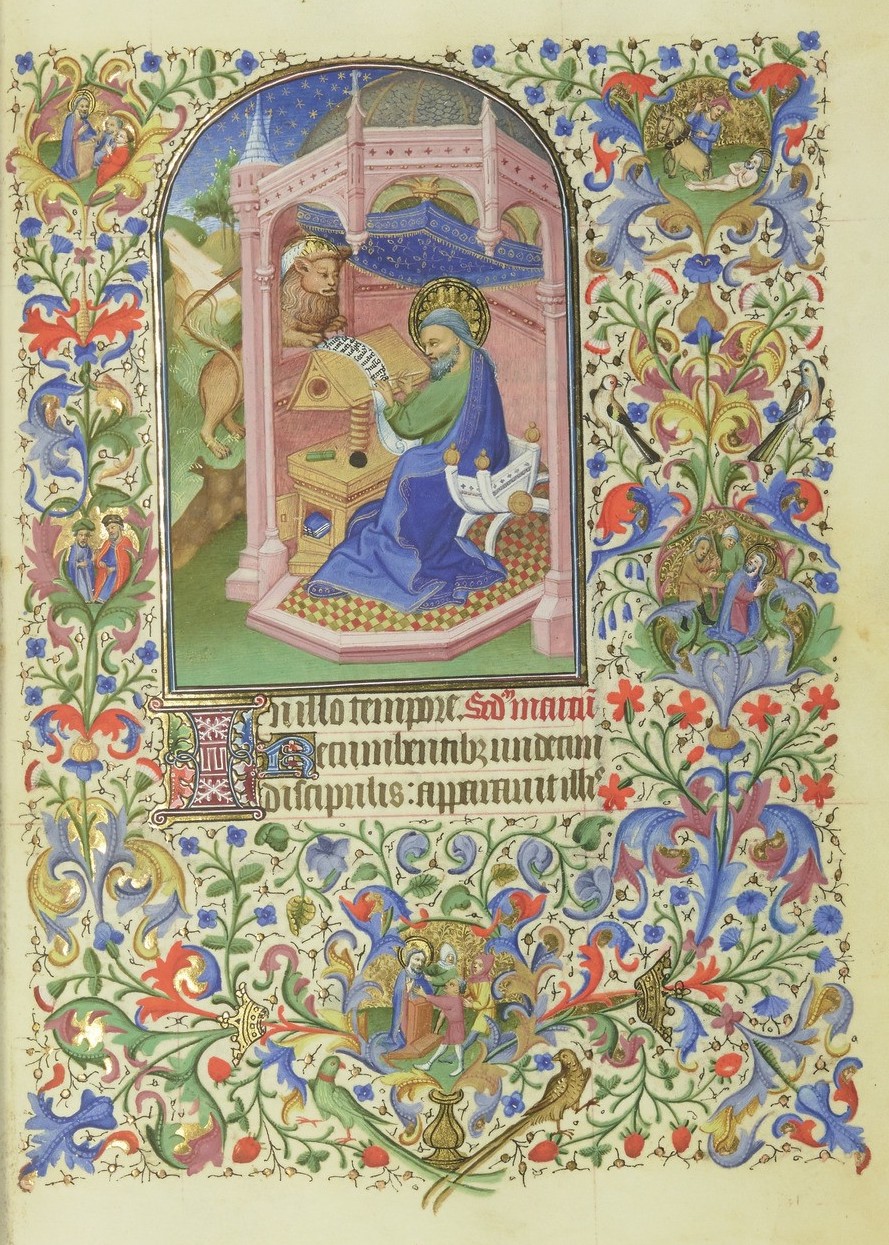 In illo tempore. Scdm marcū
Recumbentibꝫ undecim
discipulis: apparuit illis